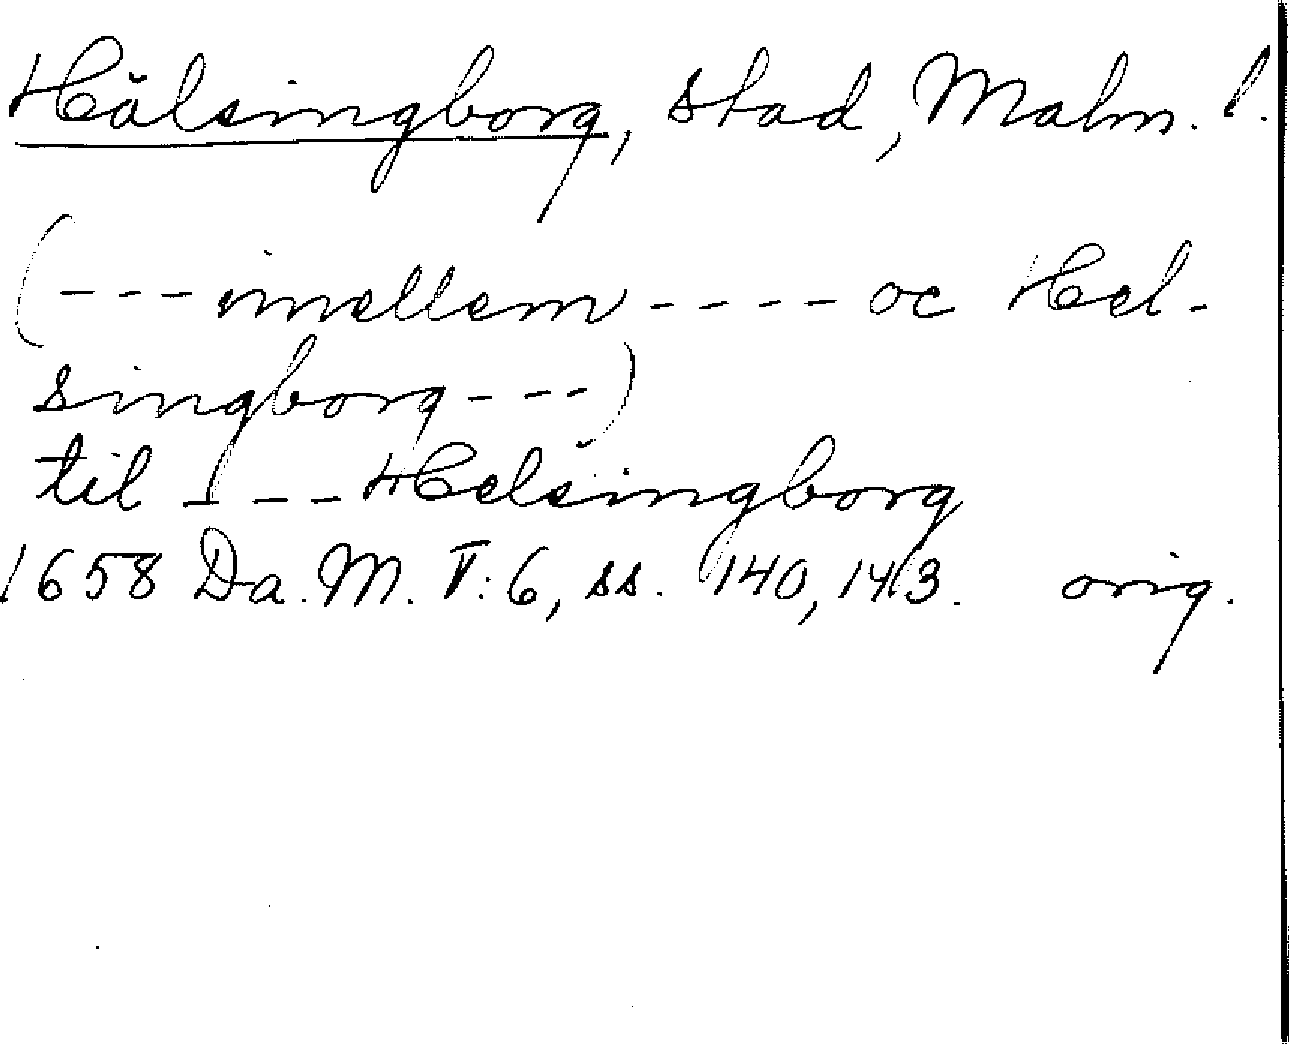 Hälsingborg, stad, Malm. l.
(--- imellem ---- oc Hel-
singborg ---)
til --- Helsingborg
1658 Da. M. V: 6, ss. 140, 143. orig.